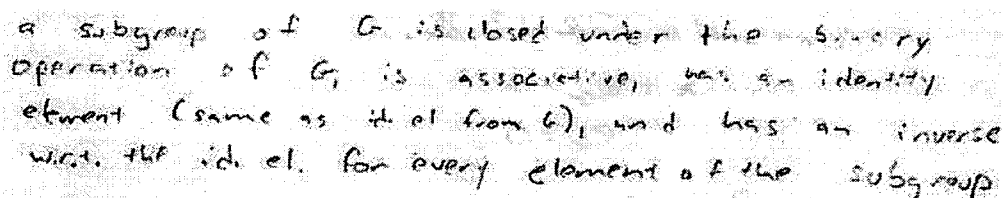 a subgroup of G is closed under the binary
operation of G, is associative, has an identity
element (same as id. el from G), and has an inverse
w.r.t. the id. el. for every element of the subgroup